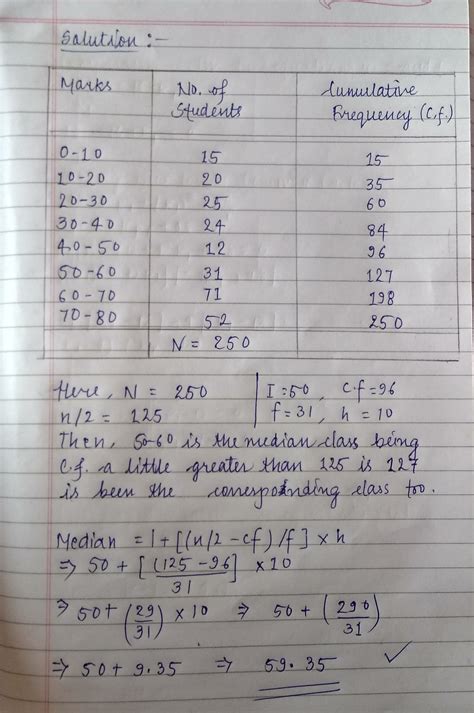 Solution :-
Marks No. of Students Cumulative Frequency (C.f.)
0-10 15 15
10-20 20 35
20-30 25 60
30-40 24 84
40-50 12 96
50-60 31 127
60-70 71 198
70-80 52 250
N = 250
Here, N = 250 I=50, C.f=96
n/2 = 125 f=31, h=10
Then, 50-60 is the median class being
C.f. a little greater than 125 is 127
is been the corresponding class too.
Median = l+[(n/2-cf)/f]×h
⇒ 50+[(125-96]/31 ×10
⇒ 50+(29/31)×10 ⇒ 50+(290/31)
⇒ 50+9.35 ⇒ 59.35 ✓